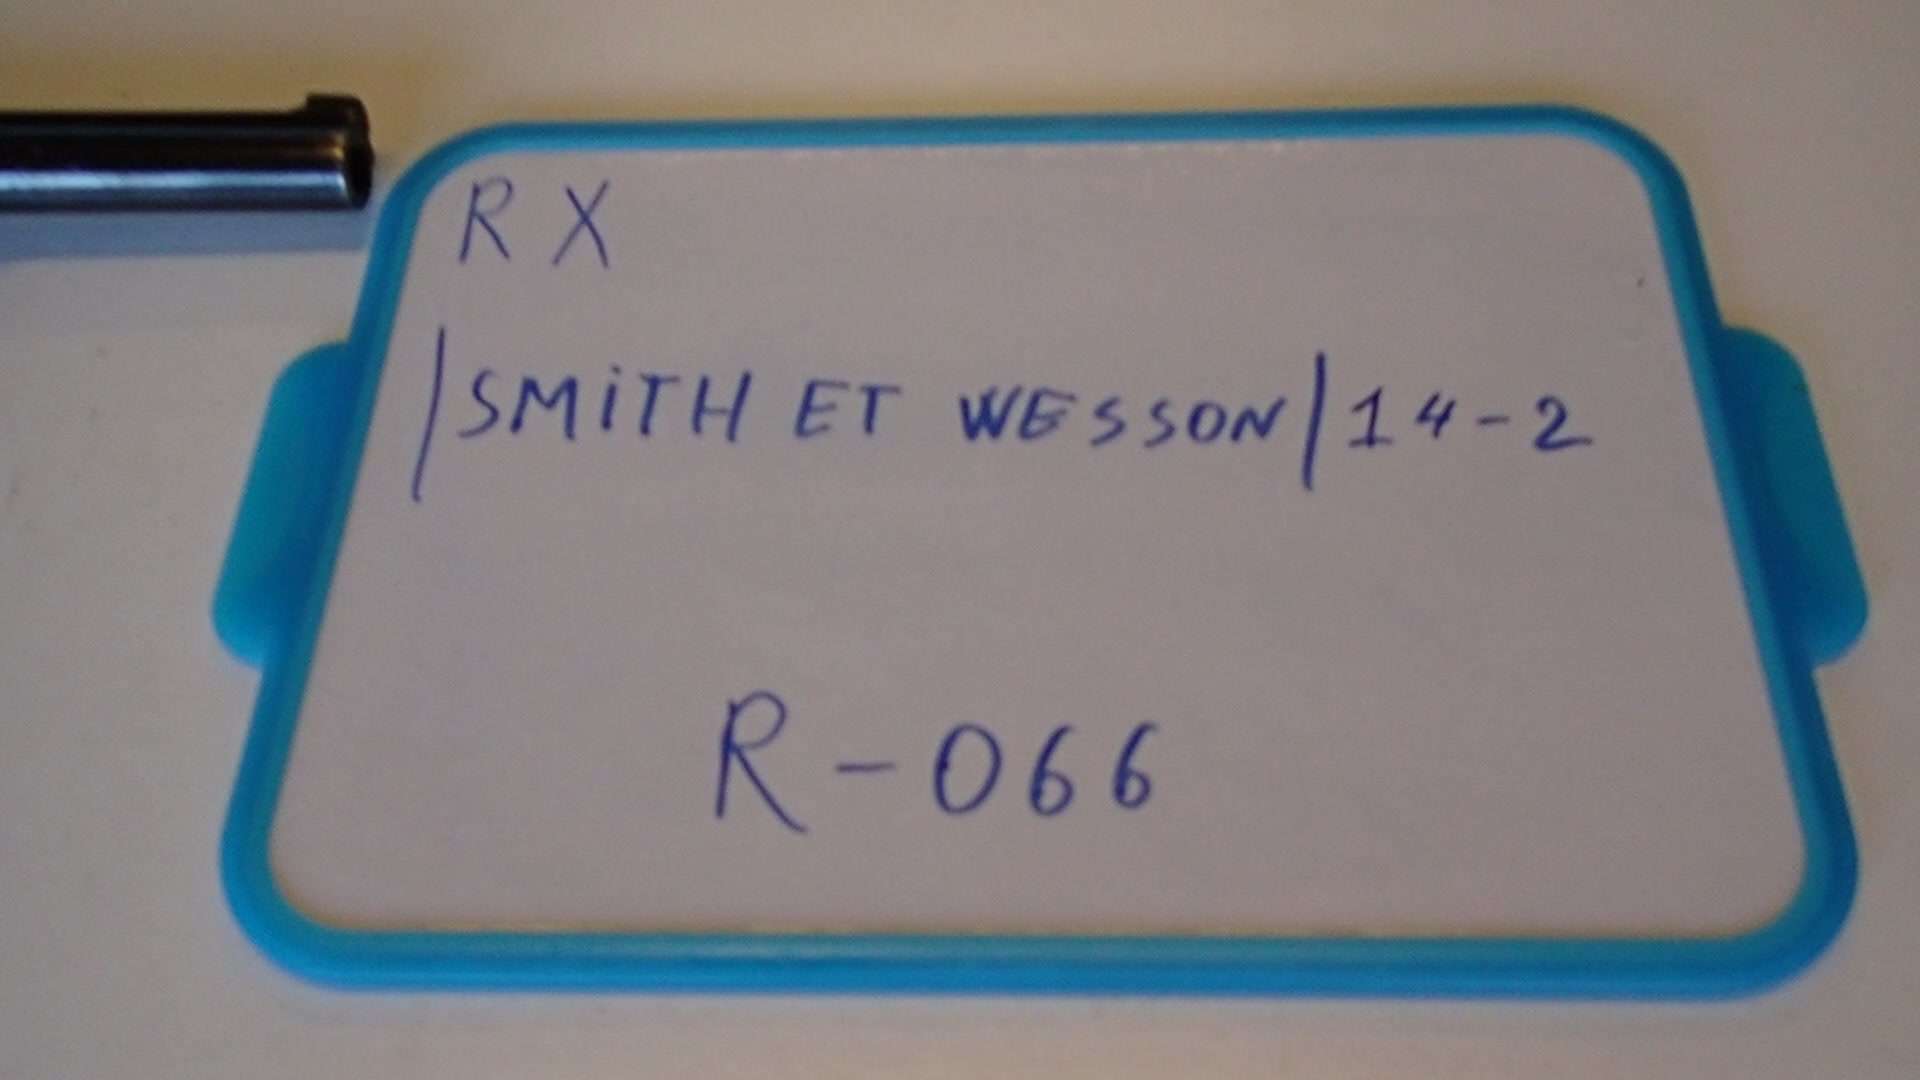 RX
/SMiTH ET WESSON/14-2
R-066